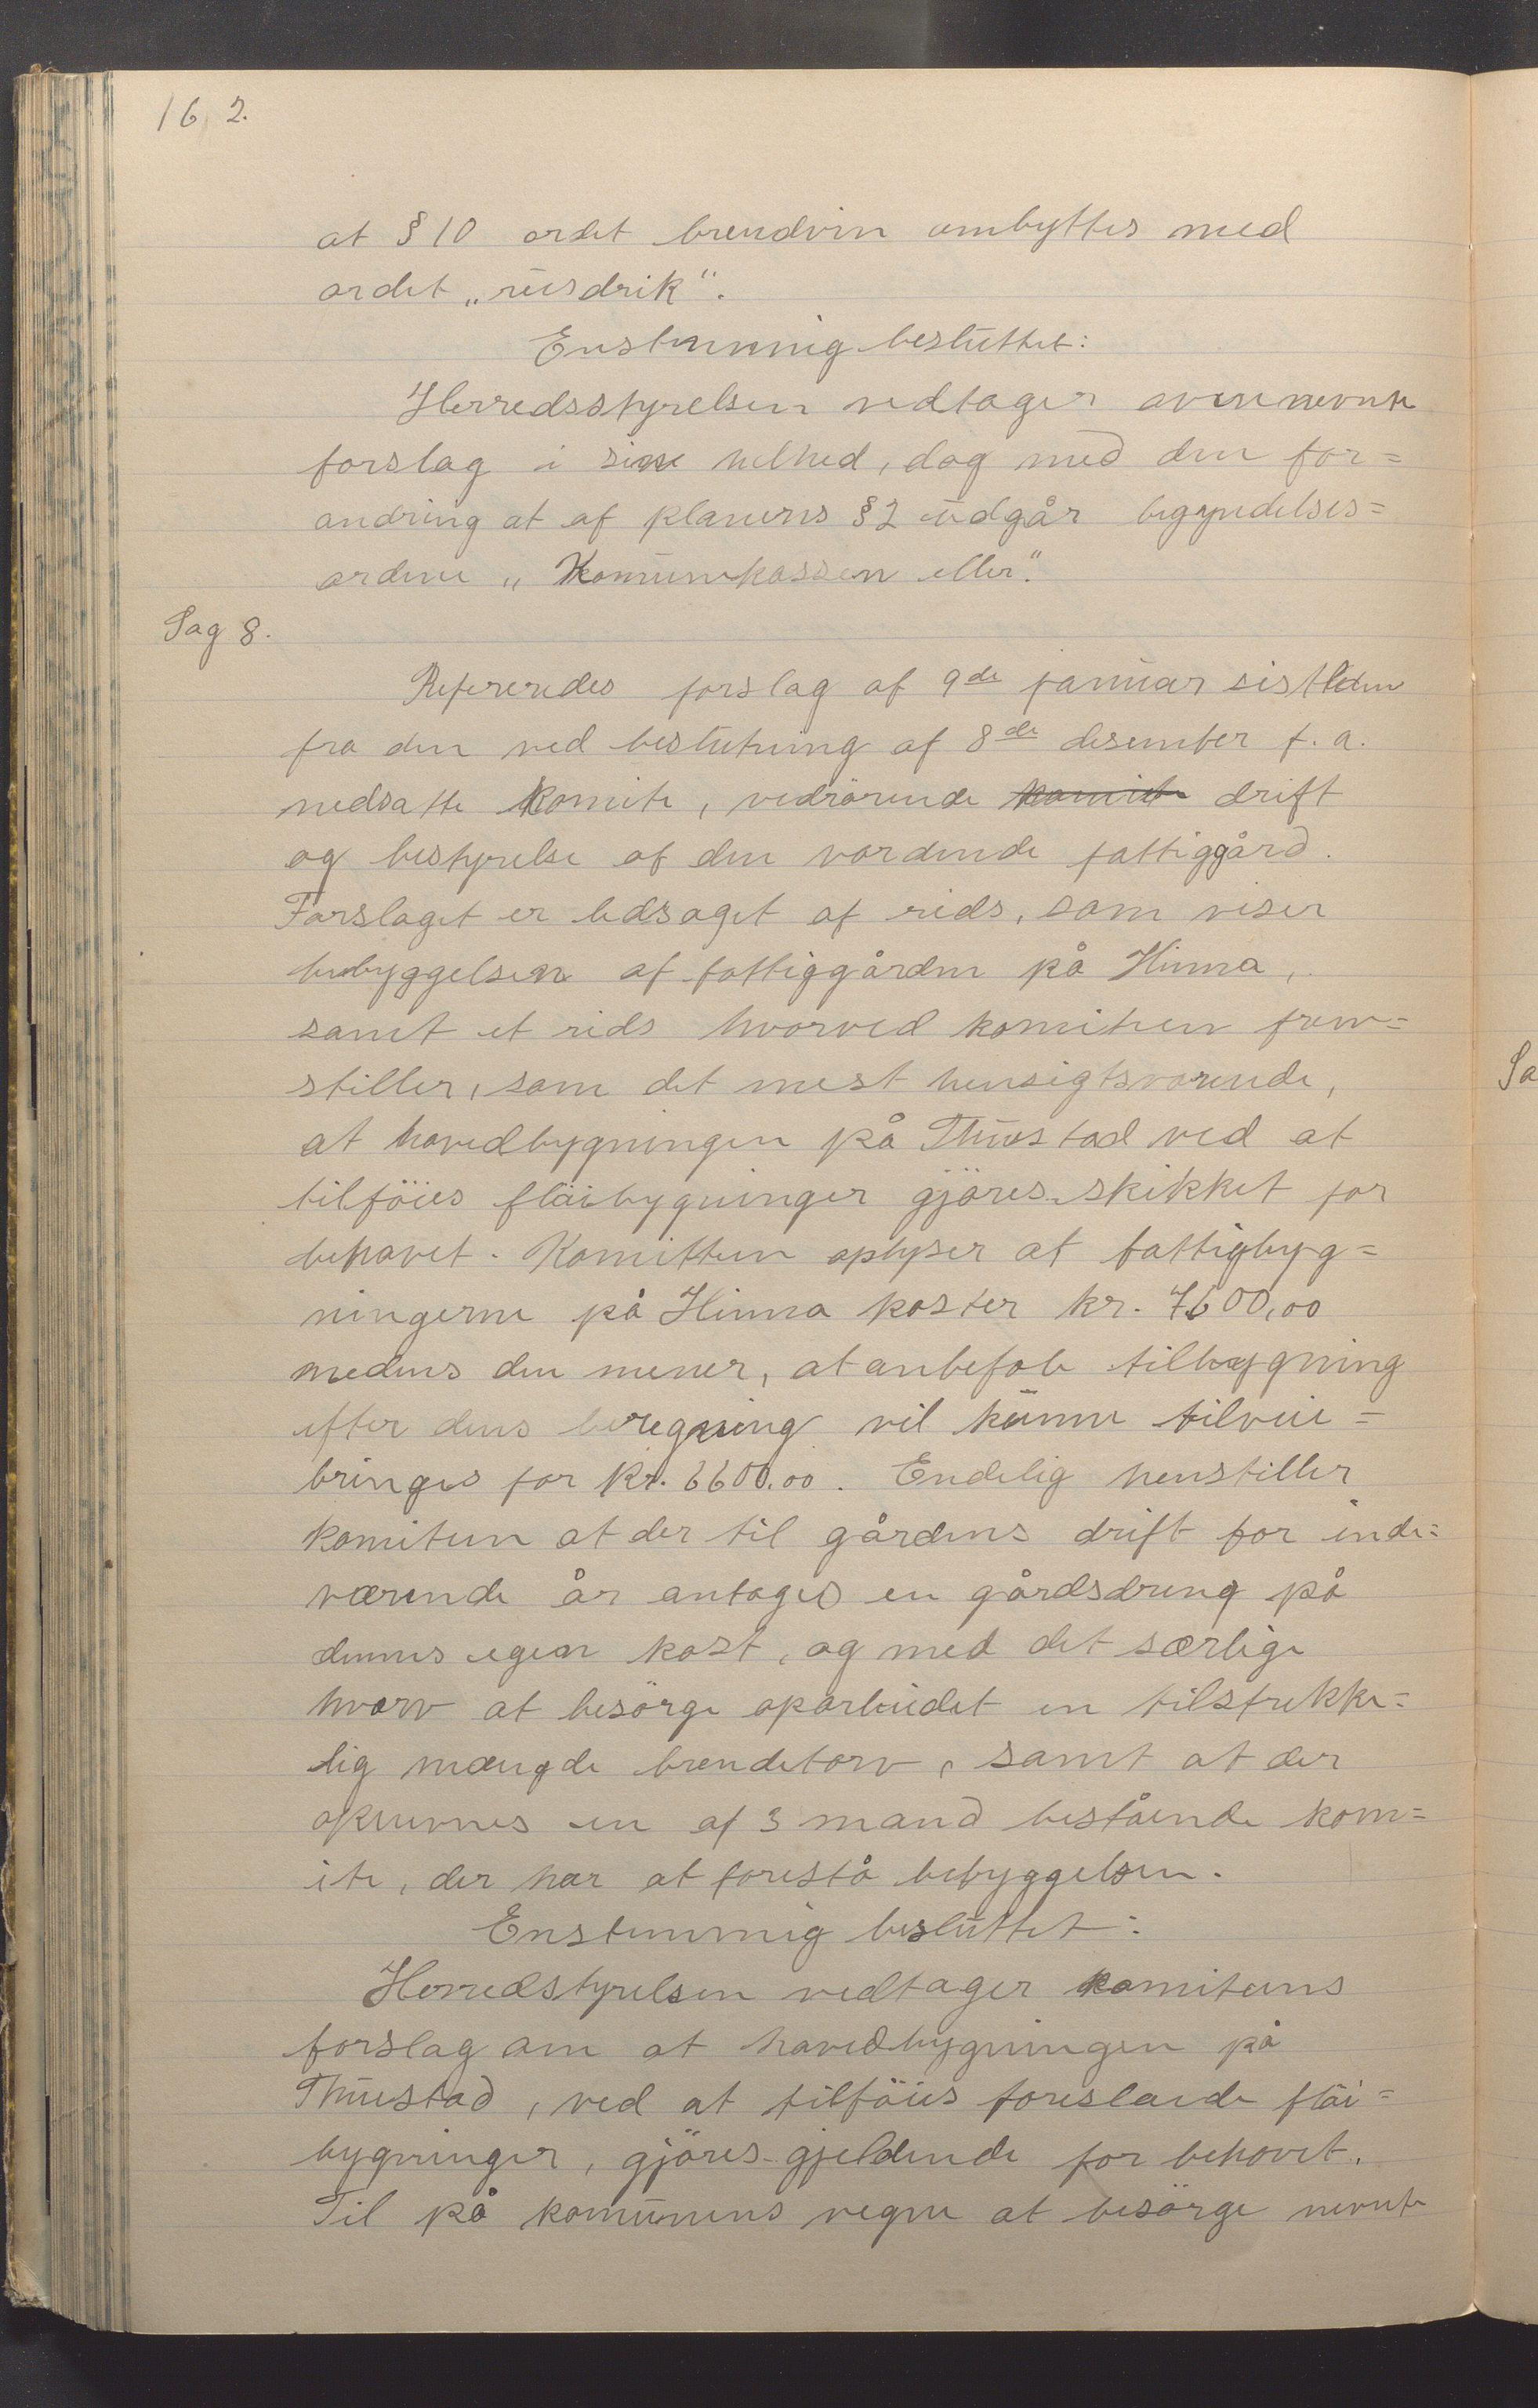 162.
at § 10 ordet brendvin ombyttes med
ordet „rusdrik".
Enstemmig besluttet:
Herredsstyrelsen vedtager ovennevnte
forslag i sin helhed, dog med den for=
andring at af planens § 2 udgår begyndelses=
ordene „Komunekassen eller".
Sag 8.
Refereredes forslag af 9de januar sistleden
fra den ved beslutning af 8de desember f. a.
nedsatte komite, vedrörende komite drift
og bestyrelse af den vordende fattiggård.
Forslaget er ledsaget af rids, som viser
bebyggelsen af fattiggården på Hinna,
samt et rids hvorved komiteen frem=
stiller, som det mest hensigtsvarende,
at hovedbygningen på Thustad ved at
tilföies flöibygninger gjöres skikket for
behovet. Komitteen oplyser at fattigbyg=
ningerne på Hinna koster kr. 7600,00
medens den mener, at anbefale tilbygning
efter dens beregning vil kunne tilveie=
bringes for kr. 6600.00. Endelig henstiller
komiteen at der til gårdens drift for inde=
værende år antages en gårdsdreng på
dennes egen kost, og med det særlige
hverv at besörge oparbeidet en tilstrekke=
lig mængde brendetorv, samt at der
opnevnes en af 3 mand bestående kom=
ite, der har at forestå bebyggelsen.
Enstemmig besluttet:
Herredstyrelsen vedtager komiteens
forslag om at hovedbygningen på
Thustad, ved at tilföies foreslaede flöi=
bygninger, gjöres gjeldende for behovet.
Til på komunens vegne at besörge nevnte
Sa